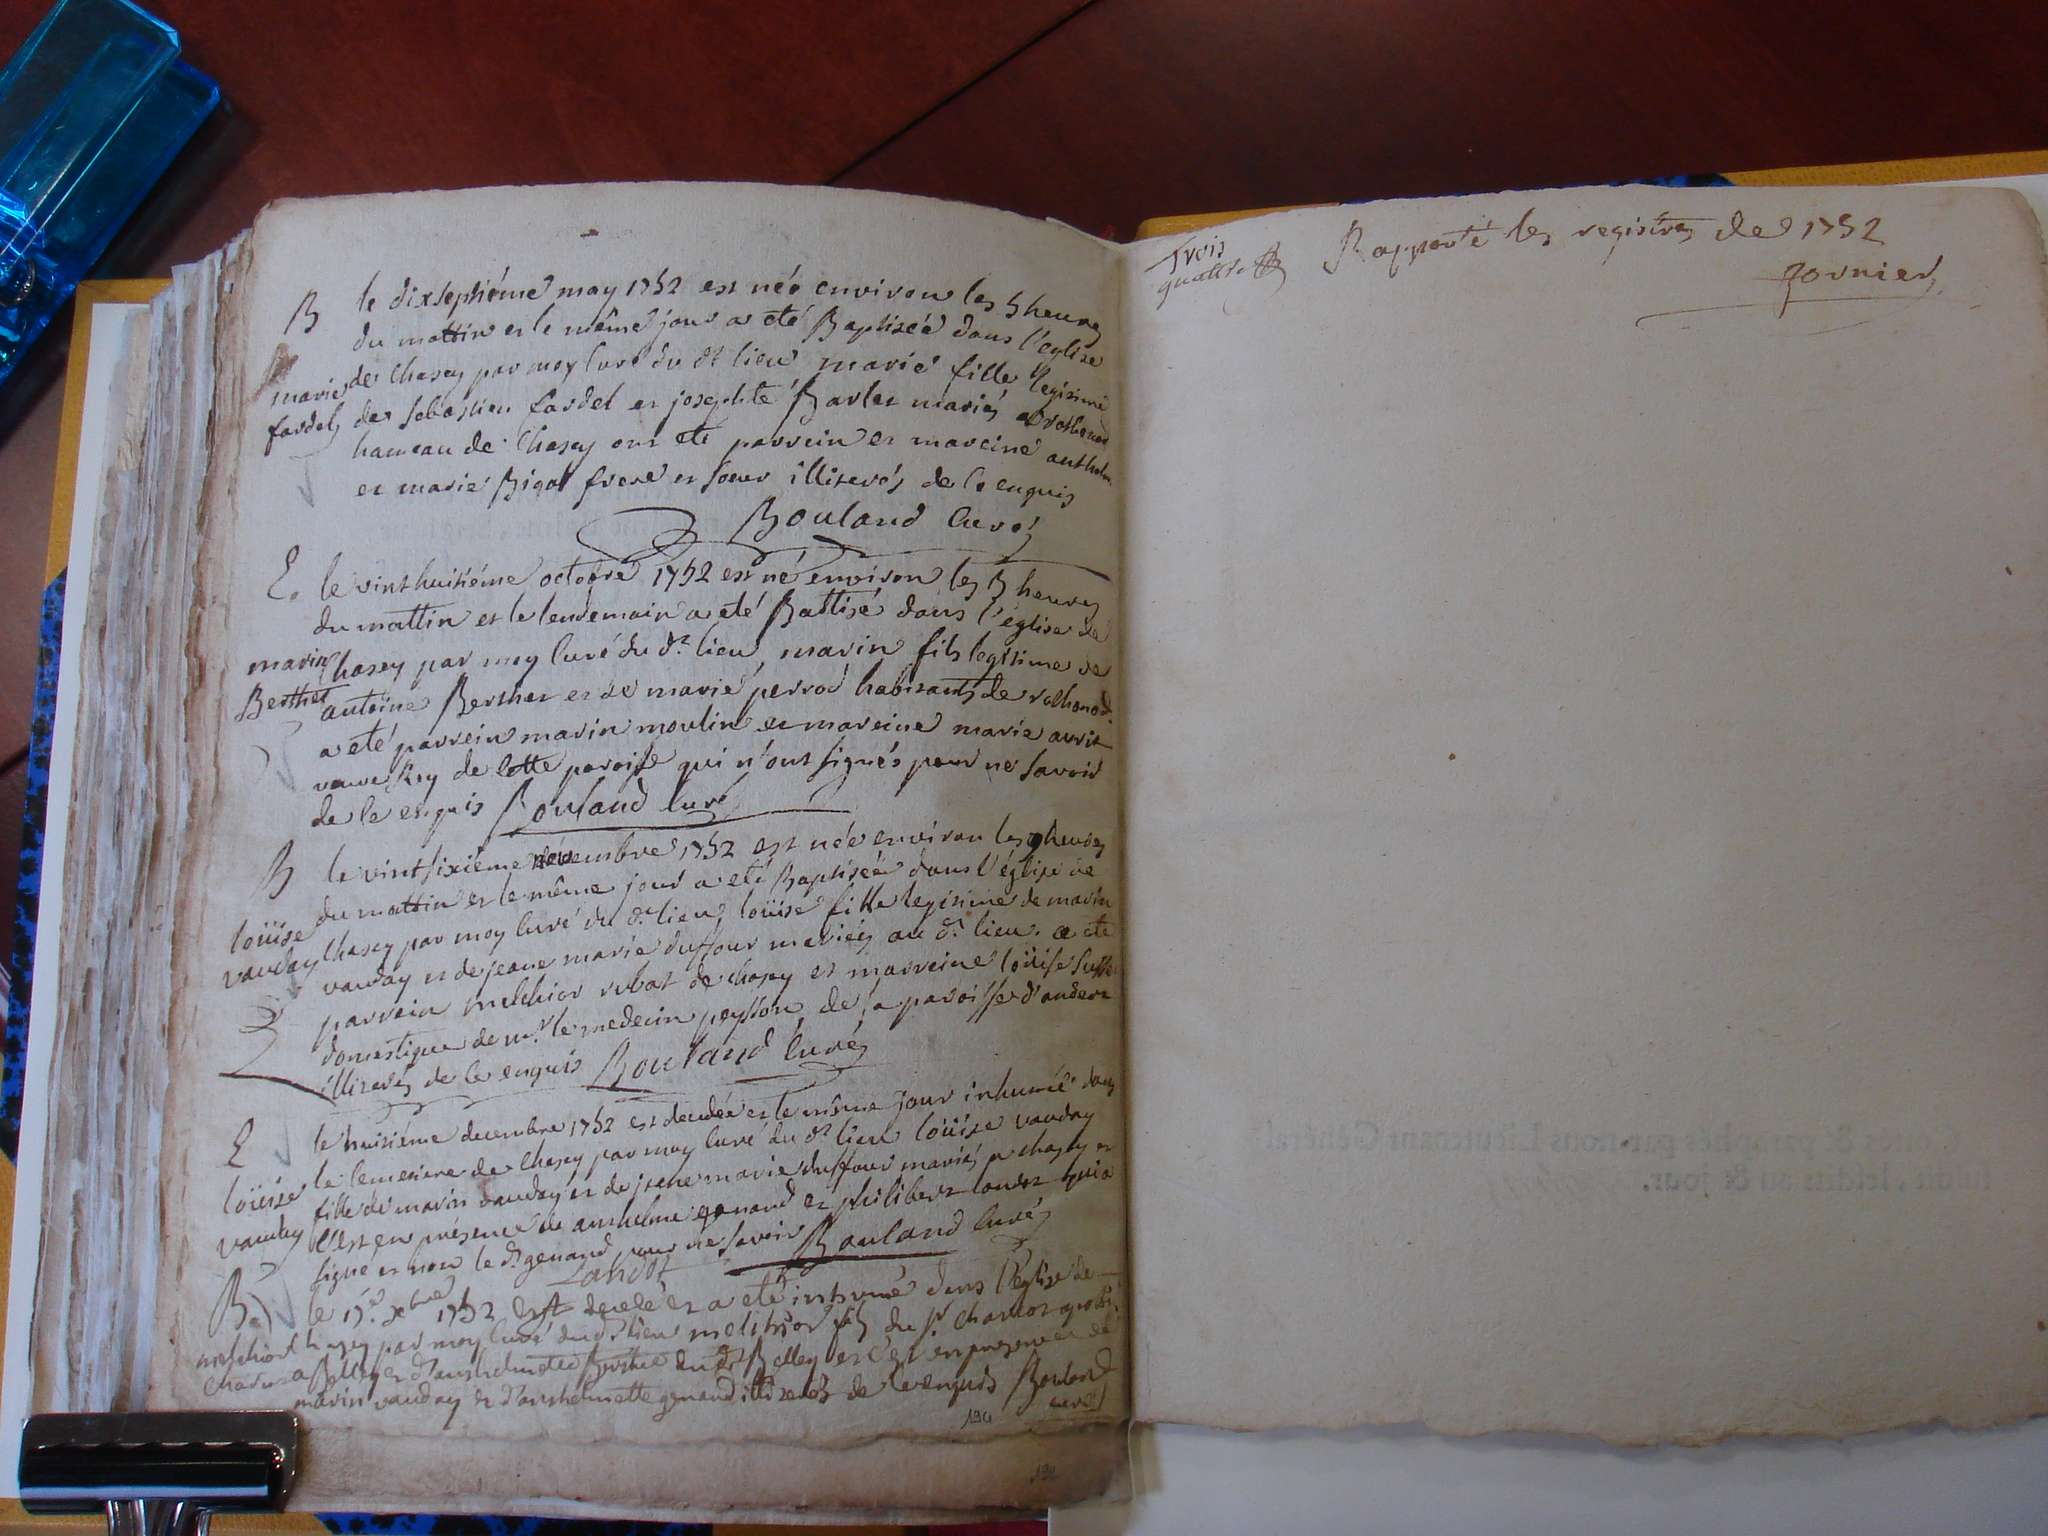 B
le dixseptiéme may 1752 est néé environ les 5 heures
du mattin et le même jour a eté Baptiséé dans l'eglise
de Chasey par moy Curé du dt lieu marie fille legitime
marie
fardel
de sebastien fardel et josephte Barlet mariés a Rothonod
hameau de Chasey ont eté parrein et mareine anthelme
et marie Bigot frere et soeur illiterés de ce enquis
Bouland Curé
E.
le vinthuitiéme octobre 1752 est né environ les 5 heures
du mattin et le lendemain a eté Battisé dans l'église de
marin
Berthet
Chasey par moy Curé du dt lieu, marin fils legitime de
antoine Berthet et de marie perrod habitants de rothonod
a eté parrein marin moulin et mareine marie
veuve Rey de cette paroisse qui n'ont signés pour ne savoir
de ce enquis Bouland Curé
B
le vintsixiéme novembre 1752 est néé environ les 9 heures
du mattin et le même jour a eté Baptiséé dans l'église de
loüise
vauday
Chasey par moy Curé du dt lieu loüise fille legitime de marin
vauday et de jeane marie duffour mariés au dt lieu. a eté
parrein melchior rubat de chasey et marreine loüise
domestique de mr le medecin peysson de la paroisse d'andert
illiterés de ce enquis Bouland Curé
E
le huitiéme decembre 1752 est decedéé et le même jour inhuméé dans
le cemetiere de Chasey par moy Curé du dt lieu loüise vauday
loüise
vauday
fille de marin vauday et de jeane marie duffour mariés a chasey et
c'est en présence de anthelme genand et philibert landot qui a
signé et non le dt genand pour ne savoir Bouland Curé
Landot
le 15e xbre 1752 est decedé et a eté inhumé dans l'église de
Chasey par moy Curé du dt lieu melchior fils du sr
melchior
a Belley et d'anthelmette du dt Belley et c'est en presence de
marin vauday et d'anthelmette genand illiterés de ce enquis Bouland
curé
194
192
Trois
quattre
Rapporté les registres de 1752
Jornier